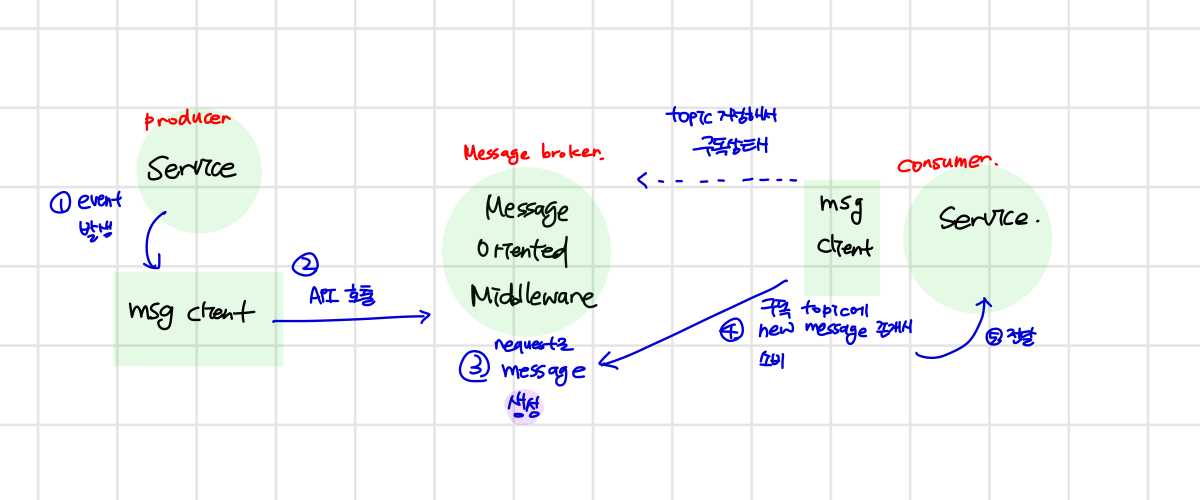 producer
Service
① event
발생
msg client
②
API 호출
Message broker.
Message
Oriented
Middleware
③ request로
message
생성
topic 지정해서
구독상태
msg
client
consumer.
Service.
④ 구독 topic에
new message 존재시
소비
⑤ 전달